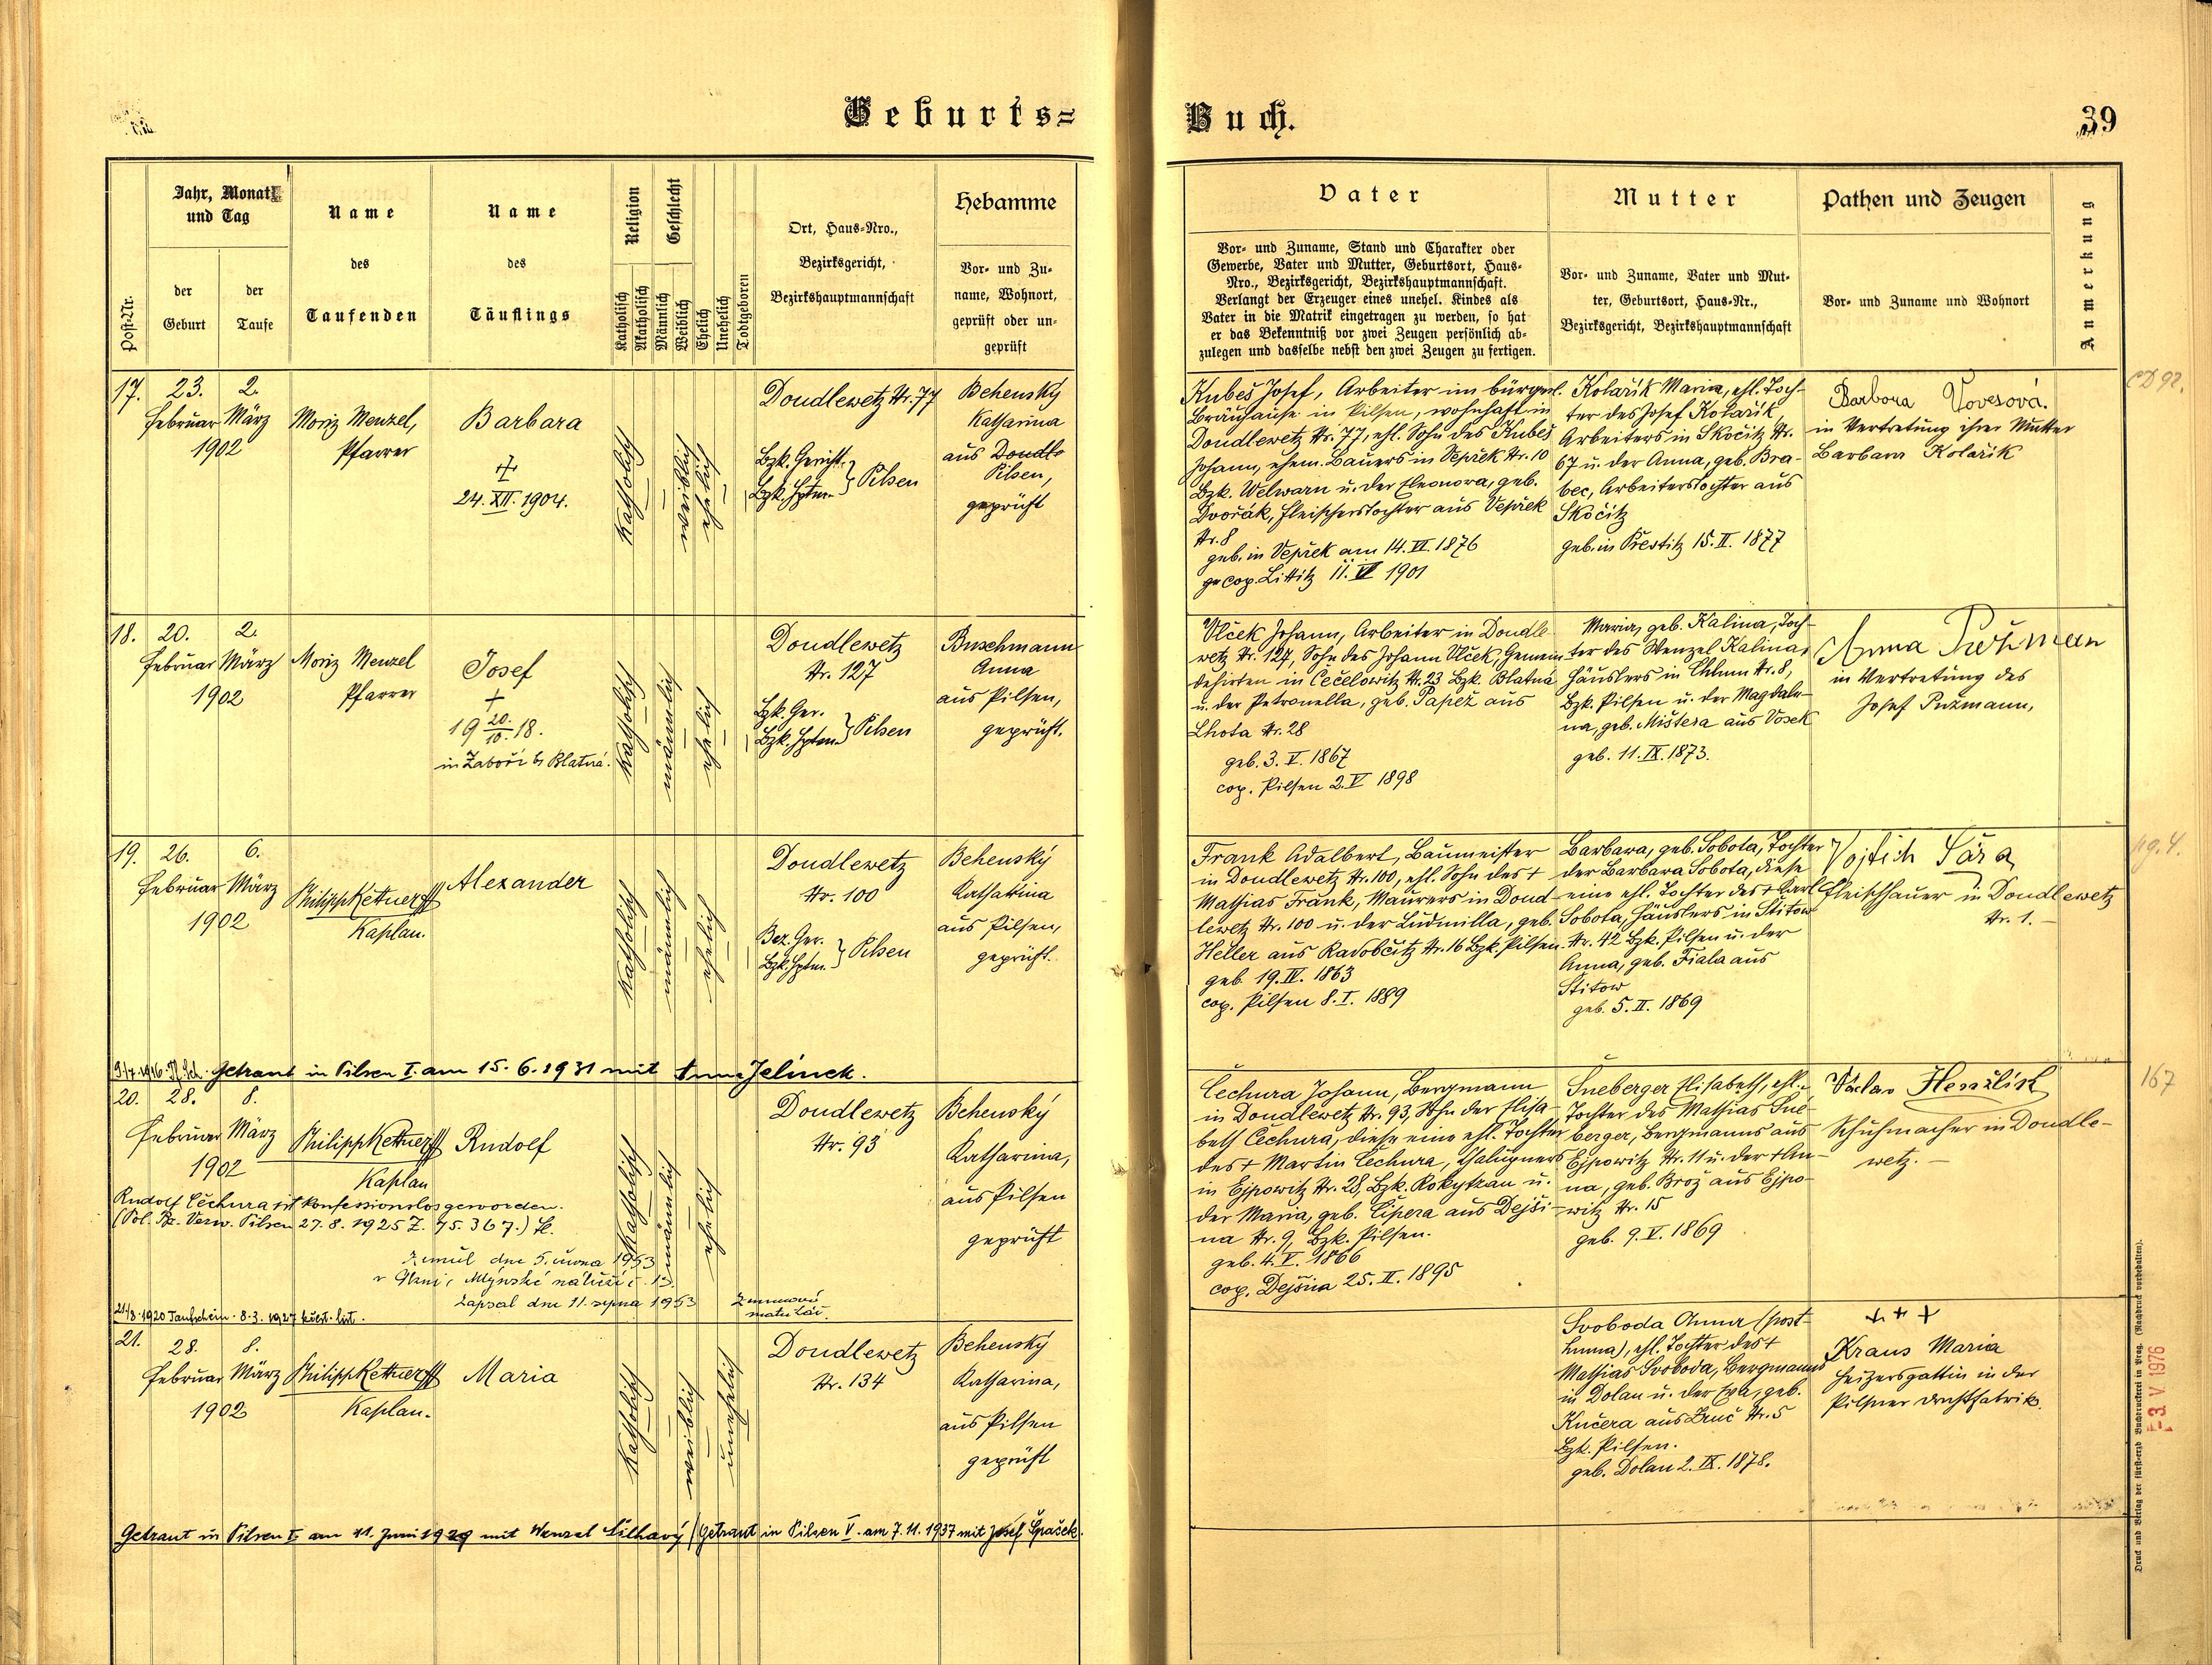 Geburts=
Buch.
39
Post-Nr.
Jahr, Monat
und Tag
der
Geburt
der
Taufe
Name
des
Taufenden
Name
des
Täuflings
Religion
Katholisch
Akatholisch
Geschlecht
Männlich
Weiblich
Ehelich
Unehelich
Todtgeboren
Ort, Haus-Nro.,
Bezirksgericht,
Bezirkshauptmannschaft
Hebamme
Vor- und Zu-
name, Wohnort,
geprüft oder un-
geprüft
Vater
Vor- und Zuname, Stand und Charakter oder
Gewerbe, Vater und Mutter, Geburtsort, Haus-
Nro., Bezirksgericht, Bezirkshauptmannschaft.
Verlangt der Erzeuger eines unehel. Kindes als
Vater in die Matrik eingetragen zu werden, so hat
er das Bekenntniß vor zwei Zeugen persönlich ab-
zulegen und dasselbe nebst den zwei Zeugen zu fertigen.
Mutter
Vor- und Zuname, Vater und Mut-
ter, Geburtsort, Haus-Nr.,
Bezirksgericht, Bezirkshauptmannschaft
Pathen und Zeugen
Vor- und Zuname und Wohnort
Anmerkung
17.
23.
Februar
2.
März
1902
Moriz Menzel,
Pfarrer
Barbara
24. XII. 1904.
katholisch
weiblich
ehelich
Doudlewetz Nr. 77
Bzk. Gericht
Bzk. Hptm. } Pilsen
Behenský
Katharina
aus Doudle
Pilsen,
geprüft
Kubeš Josef, Arbeiter im bürgerl.
Bräuhause in Pilsen, wohnhaft in
Doudlewetz Nr. 77, ehl. Sohn des Kubeš
Johann, ehem. Bauers in Vepřek Nr. 10
Bzk. Welwarn u. der Eleonora, geb.
Dvořák, Fleischerstochter aus Vepřek
Nr. 8
geb. in Vepřek am 14. VI. 1876
cop. Littitz 11. VI 1901
Kolařik Maria, ehl. Toch-
ter des Josef Kolařik,
Arbeiters in Skočitz Nr.
67 u. der Anna, geb. Bra-
bec, Arbeiterstochter aus
Skočitz
geb. in Přestitz 15. II. 1877
Barbora Vovesová.
in Vertretung ihrer Mutter
Barbara Kolařik
18.
20.
Februar
2.
März
1902
Moriz Menzel
Pfarrer
Josef
+
19 20./10. 18.
in Zaboří b Blatná.
katholisch
männlich
ehelich
Doudlewetz
Nr. 127
Bzk. Ger.
Bzk. Hptm. } Pilsen
Buschmann
Anna
aus Pilsen,
geprüft.
Vlček Johann, Arbeiter in Doudle-
wetz Nr. 127, Sohn des Johann Vlček, Gemein-
dehirten in Čečelowitz Nr. 23 Bzk. Blatna
u. der Petronella, geb. Papež aus
Lhota Nr. 28
geb. 3. V. 1867
cop. Pilsen 2. V 1898
Maria, geb. Kalina, Toch-
ter des Wenzel Kalina,
Häuslers in Chlum Nr. 8,
Bzk. Pilsen u. der Magdale-
na, geb. Mištera aus Vosek
geb. 11. IX. 1873.
Anna
in Vertretung des
Josef Pužmann,
19.
26.
Februar
6.
März
1902
Philipp Kettner
Kaplan.
Alexander
katholisch
männlich
ehelich
Doudlewetz
Nr. 100
Bez. Ger.
Bzk. Hptm. } Pilsen
Behenský
Katharina
aus Pilsen,
geprüft.
Frank Adalbert, Baumeister
in Doudlewetz Nr. 100, ehl. Sohn des +
Mathias Frank, Maurers in Doud-
lewetz Nr. 100 u. der Ludmilla, geb.
Heller aus Radobčitz Nr. 16 Bzk. Pilsen.
geb. 19. IV. 1863
cop. Pilsen 8. I. 1889
Barbara, geb. Sobota, Tochter
der Barbara Sobota, diese
eine ehl. Tochter des + Karl
Sobota, Häuslers in Štitow
Nr. 42 Bzk. Pilsen u. der
Anna, geb. Fiala aus
Štitow
geb. 5. II. 1869
Vojtěch Sára
Fleischhauer in Doudlewetz
Nr. 1.
Getraut in Pilsen I. am 15. 6. 1931 mit Anna Jelinek.
20.
28.
Februar
8.
März
1902
Philipp Kettner
Kaplan
Rudolf
katholisch
männlich
ehelich
Doudlewetz
Nr. 93
Behenský
Katharina,
aus Pilsen
geprüft
Rudolf Čechura ist konfessionslos geworden.
(Pol. Bz. Verw. Pilsen 27. 8. 1925 Z. 75.367.)
Zemřel dne 5. února 1953
v Plzni, Mlýnské nábřeží č. 13.
Zapsal dne 11. srpna 1953
21/8. 1920 Taufschein. 8. 3. 1927 křest. list.
Čechura Johann, Bergmann
in Doudlewetz Nr. 93, Sohn der Elisa-
beth Čechura, diese eine ehl. Tochter
des + Martin Čechura, Chalupners
in Ejpowitz Nr. 28, Bzk. Rokytzan u.
der Maria, geb. Čipera aus Dejši-
na Nr. 9, Bzk. Pilsen.
geb. 4. V. 1866
cop. Dejšina 25. II. 1895
Šneberger Elisabeth, ehl.
Tochter des Mathias Šne-
berger, Bergmanns aus
Ejpowitz Nr. 11 u. der + An-
na, geb. Brož aus Ejpo-
witz Nr. 15
geb. 9. V. 1869
Václav
Schuhmacher in Doudle-
wetz.
21.
28.
Februar
8.
März
1902
Philipp Kettner
Kaplan.
Maria
katholisch
weiblich
unehelich
Doudlewetz
Nr. 134
Behenský
Katharina,
aus Pilsen
geprüft
Svoboda Anna (post-
huma), ehl. Tochter des +
Mathias Svoboda, Bergmanns
in Dolan u. der Eva, geb.
Kučera aus Druč Nr. 5
Bzk. Pilsen.
geb. Dolan 2. IX. 1878.
+ + +
Kraus Maria
Heizersgattin in der
Pilsner Drahtfabrik.
Getraut in Pilsen I. am 11. Juni 1929 mit Wenzel Šilhavý / Getraut in Pilsen V. am 7. 11. 1937 mit Josef Špaček.
CD 92.
pg. 4.
167
Druck und Verlag der fürst-erzb. Buchdruckerei in Prag. (Nachdruck vorbehalten).
-3. V. 1976